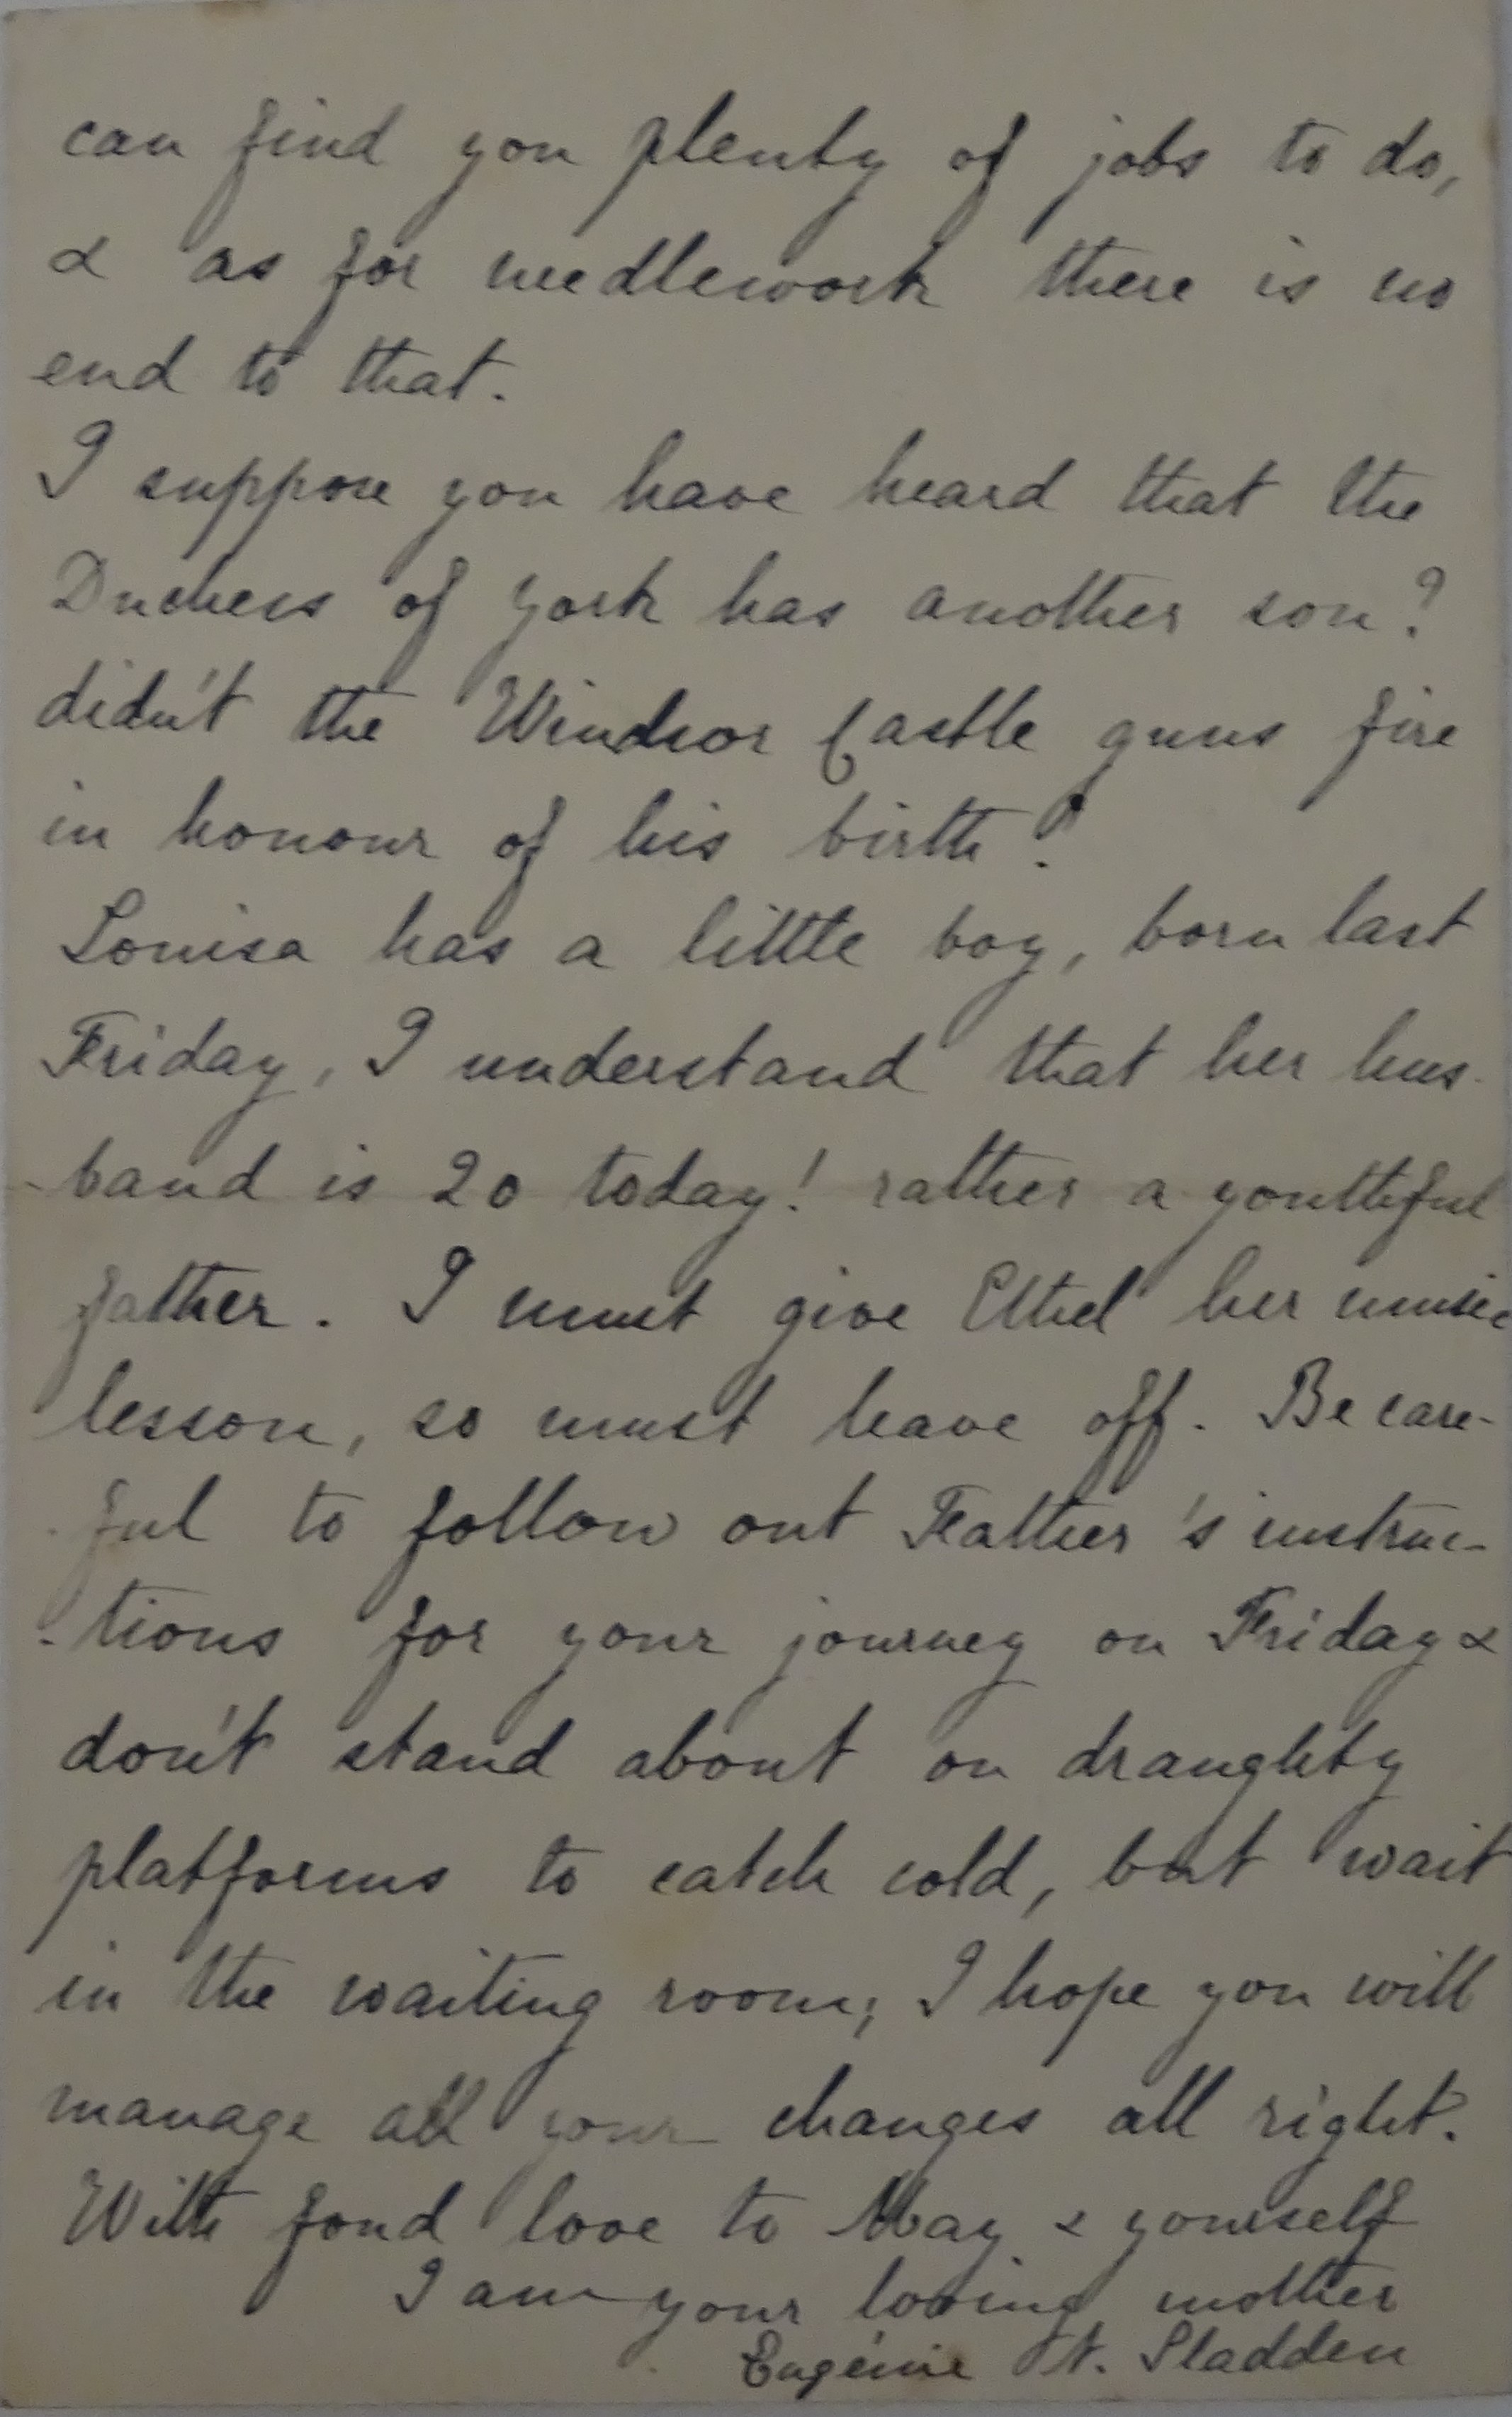 can find you plenty of jobs to do,
& as for needlework there is no
end to that.
I suppose you have heard that the
Duchess of York has another son?
didn't the Windsor Castle guns fire
in honour of his birth?
Louisa has a little boy, born last
Friday, I understand that her hus-
-band is 20 today! rather a youthful
father. I must give Ethel her music
lesson, so must leave off. Be care-
-ful to follow out Father's instruc-
-tions for your journey on Friday &
don't stand about on draughty
platforms to catch cold, but wait
in the waiting room; I hope you will
manage all your changes all right.
With fond love to May & yourself
I am your loving mother
Eugénie N. Sladden